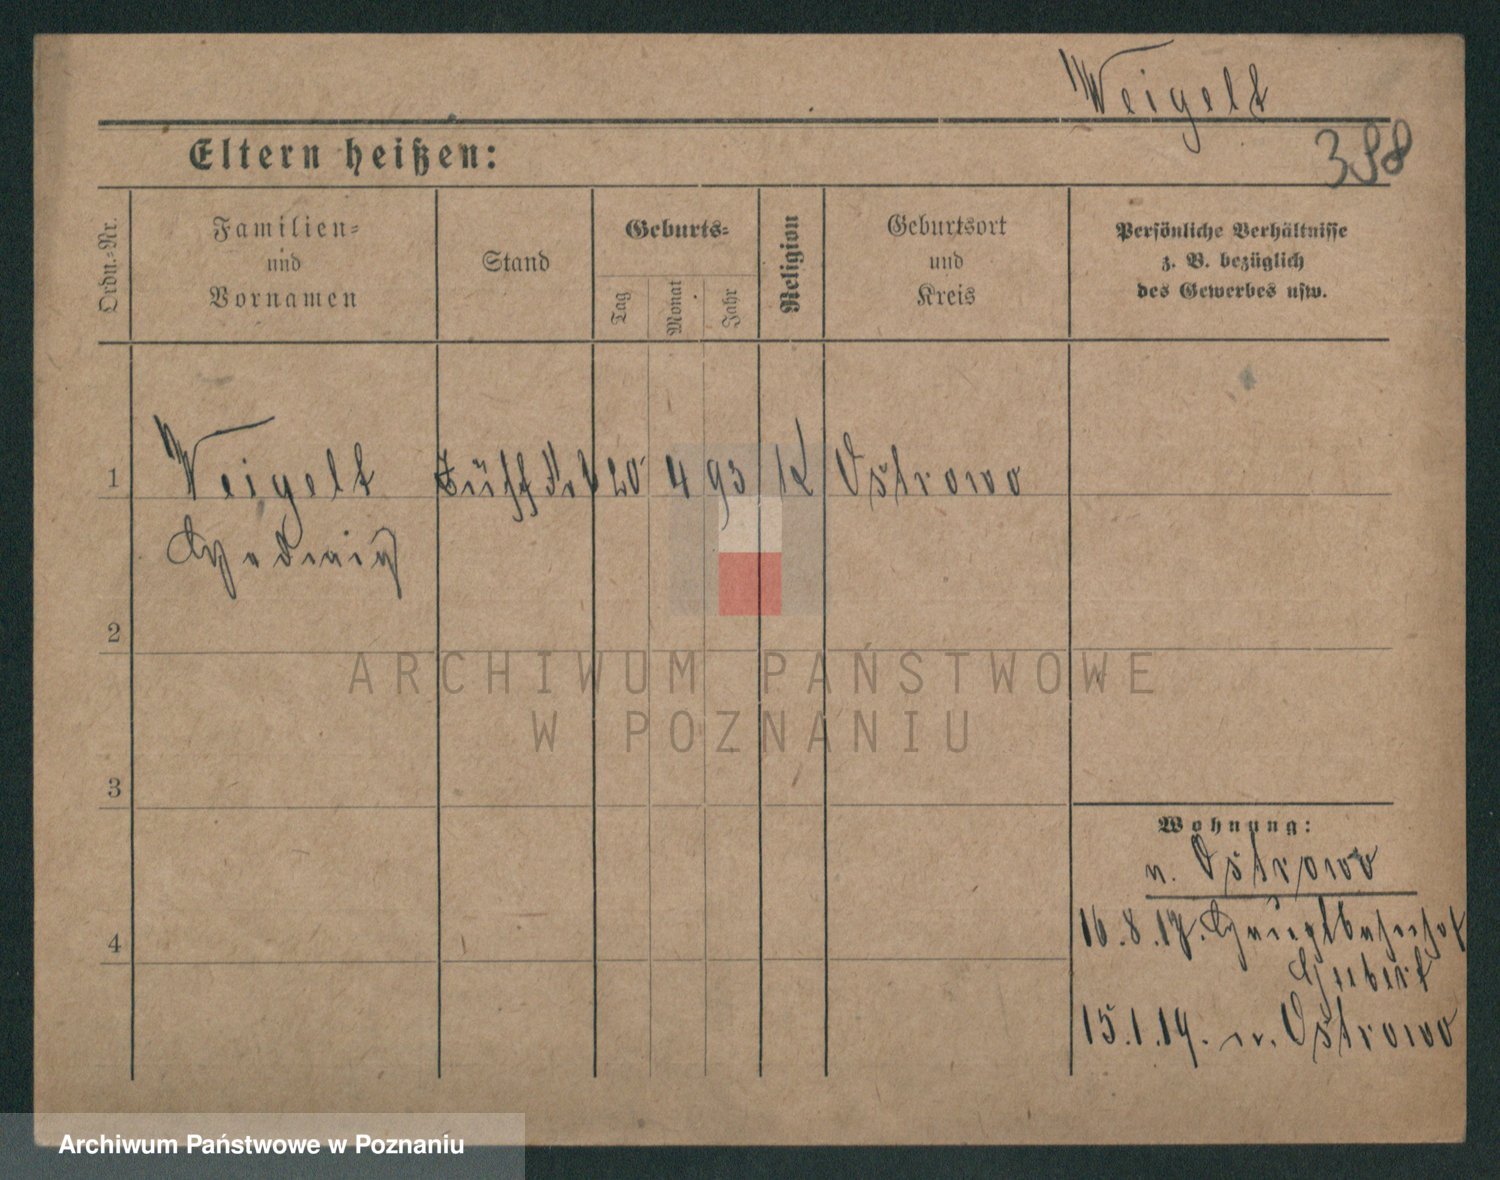 Weigelt
398
Eltern heißen:
Ordn.-Nr.
Familien-
und
Vornamen
Stand
Geburts-
Tag
Monat
Jahr
Religion
Geburtsort
und
Kreis
Persönliche Verhältnisse
z. B. bezüglich
des Gewerbes usw.
1
Weigelt 20 4 93 K Ostrowo
Hedwig
2
ARCHIWUM PAŃSTWOWE
W POZNANIU
3
Wohnung:
n. Ostrowo
4
16.8.17. Hauptbahnhof
15.1.19. n. Ostrowo
Archiwum Państwowe w Poznaniu